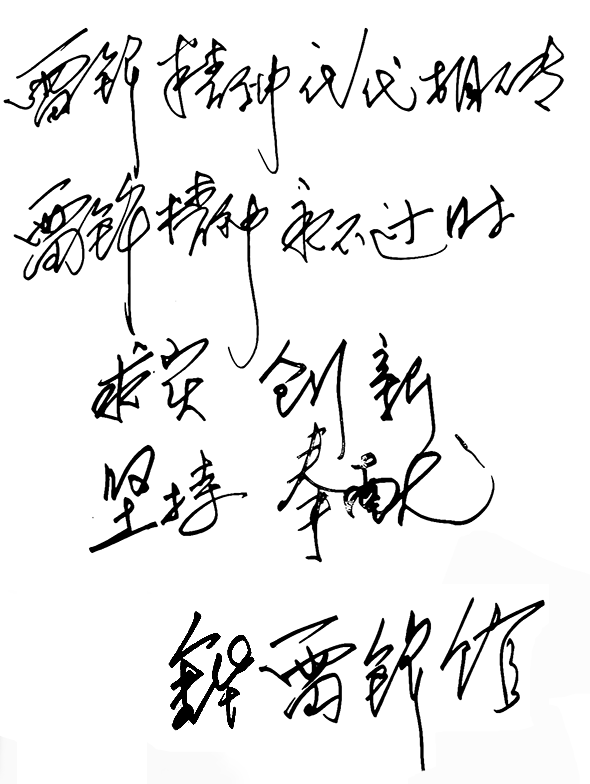 雷锋精神代代相传
雷锋精神永不过时
求实 创新
坚持 奉献
雷锋馆